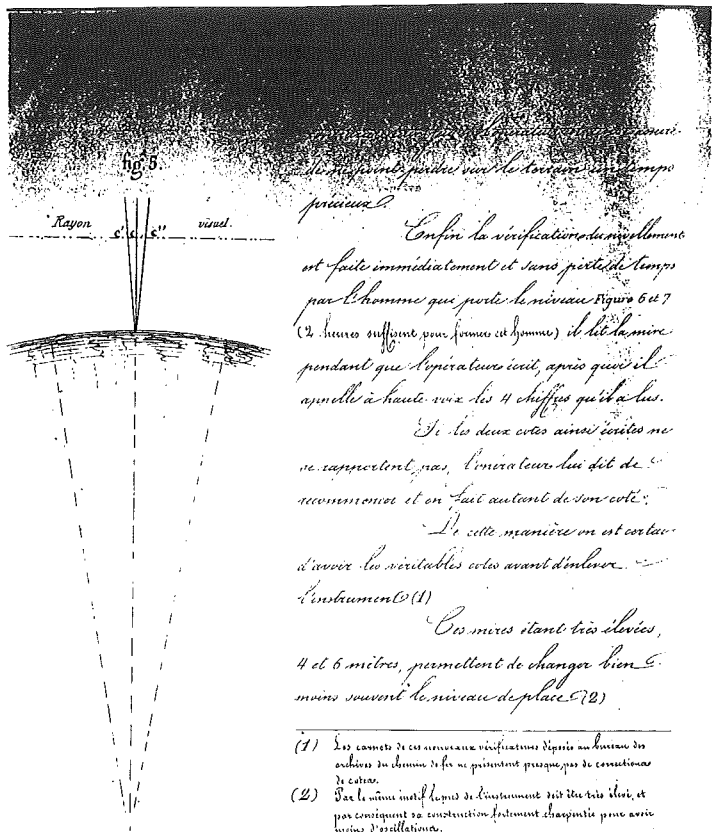 fig 5.
Rayon c' c c'' visuel.
de ne point perdre sur le terrain un temps
précieux.
Enfin la vérification du nivellement
est faite immédiatement et sans perte de temps
par l'homme qui porte le niveau Figure 6 et 7
(2 heures suffisent pour former cet homme) il lit la mire
pendant que l'opérateur écrit, après quoi il
appelle à haute voix les 4 chiffres qu'il a lus.
Si les deux cotes ainsi écrites ne
se rapportent pas, l'opérateur lui dit de
recommencer et en fait autant de son coté.
De cette manière on est certain
d'avoir les véritables cotes avant d'enlever
l'instrument (1)
Ces mires étant très élevées,
4 et 6 mètres, permettent de changer bien
moins souvent le niveau de place (2)
(1) Les carnets de ces nouveaux vérificateurs déposés au bureau des
archives du chemin de fer ne présentent presque pas de corrections
de cotes.
(2) Par le même motif le pied de l'instrument doit être très élevé, et
par conséquent sa construction fortement charpentée pour avoir
moins d'oscillations.